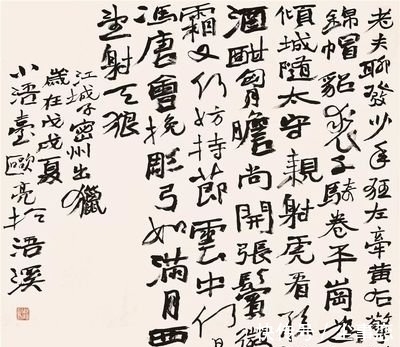 老夫聊发少年狂左牵黄右擎
錦帽貂裘千騎卷平崗为
傾城随太守親射虎看孫
酒酣胸膽尚開張鬢微
霜又何妨持節雲中何日
馮唐會挽雕弓如滿月西
望射天狼
江城子密州出獵
歲在戊戌夏
小浯臺歐亮於浯溪